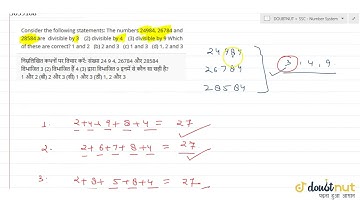 DOUBTNUT > SSC : Number System
Consider the following statements: The numbers 24984, 26784 and
28584 are divisible by 3 (2) divisible by 4 (3) divisible by 9 Which
of these are correct? 1 and 2 (b) 2 and 3 (c) 1 and 3 (d) 1, 2 and 3
निम्नलिखित कथनों पर विचार करें: संख्या 24 9 4, 26784 और 28584
विभाजित 3 (2) विभाजित हैं 4 (3) द्वारा विभाजित 9 इनमें से कौन सा सही है?
1 और 2 (बी) 2 और 3 (सी) 1 और 3 (डी) 1, 2 और 3
24984
26784
28584
3, 4, 9
1. 2+4+9+8+4 = 27
2. 2+6+7+8+4 = 27
3. 2+8+5+8+4 = 27
doubtnut